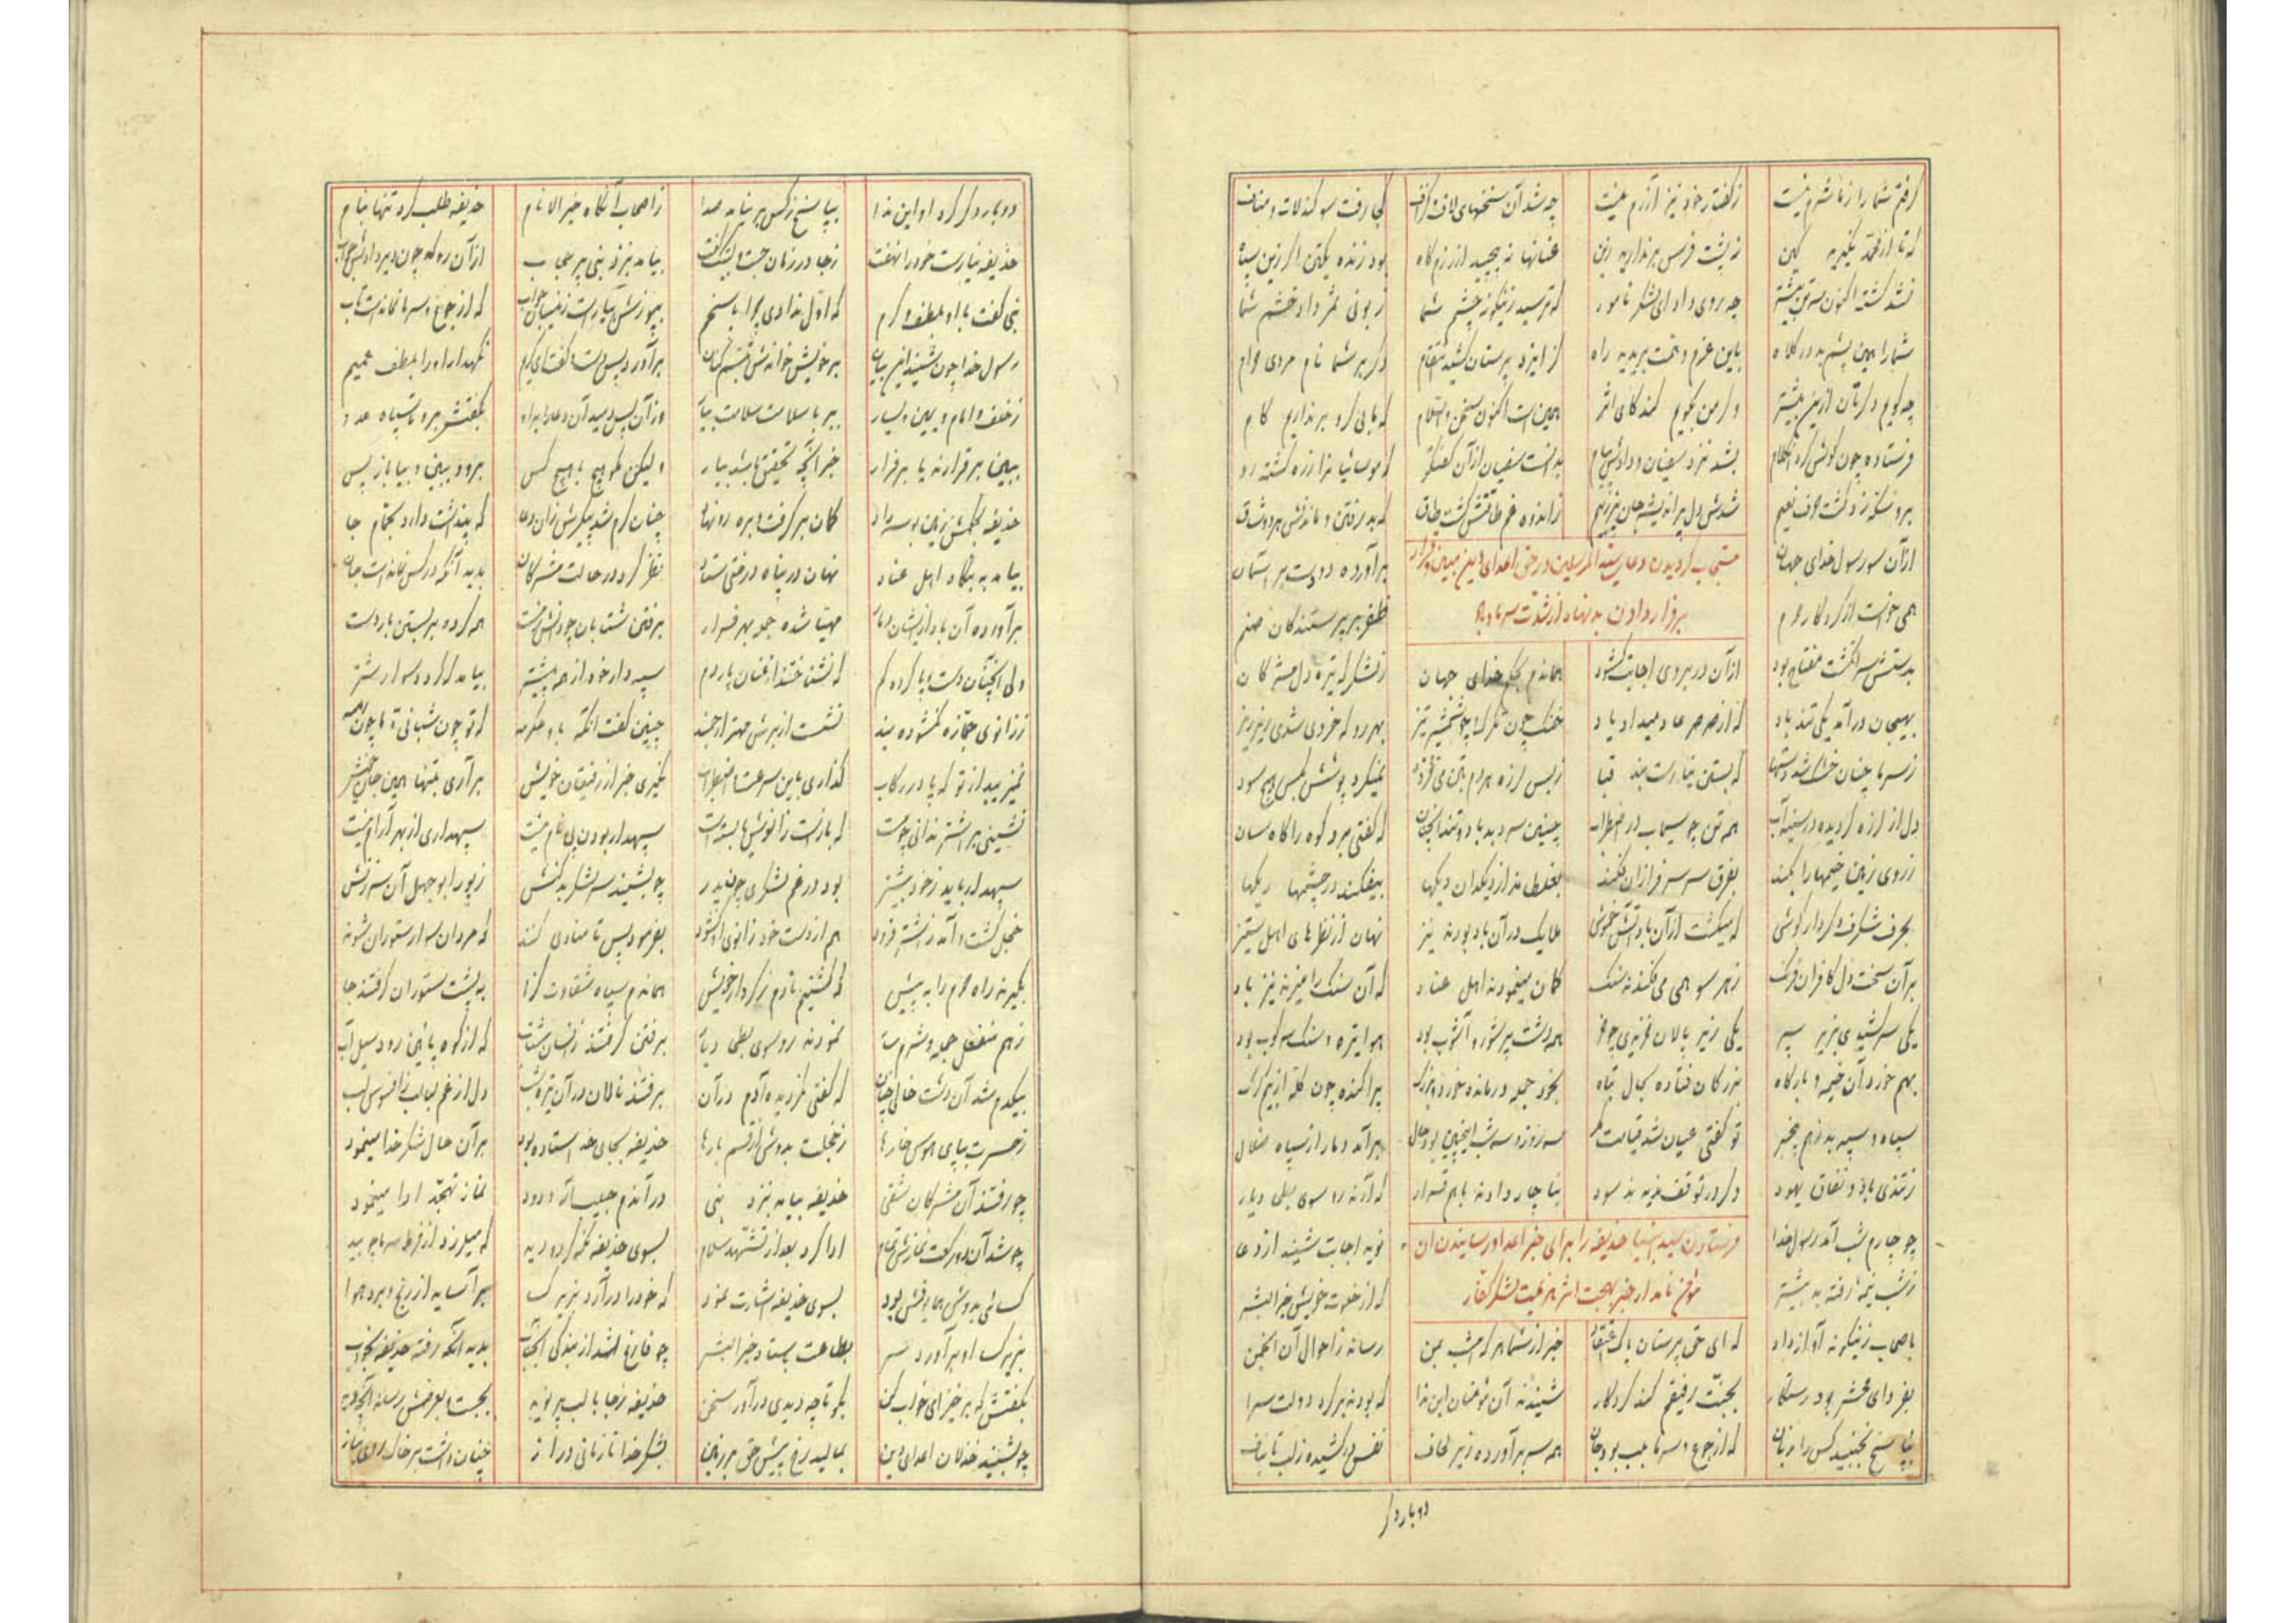 گرفتم شما را زما شرم نیست ز گفتار خود نیز آزرم نیست چه شد آن سخنهای لاف و گزاف کجا رفت سوگند لات و مناف
که تا از محمد نگیریم کین ز پشت فرس برنداریم زین عنانها نه پیچید از رزم گاه بود زنده یکتن اگر زین سپاه
نشد کشته اکنون سه تن بیشتر چه روی داد ای لشکر نامور که ترسید زینگونه چشم شما زبونی ثمر داد خشم شما
شما را همین پشم بد در کلاه باین عزم و همت بریدید راه کز ایزد پرستان کشید انتقام دگر بر شما نام مردی حرام
چه گویم دگرتان ازین بیشتر وگر من بگویم کند کی اثر همین است اکنون سخن والسلام که یا بی گرو برنداریم گام
فرستاده چون گوش کرد این کلام بشد نزد سفیان و دادش پیام بدانست سفیان از آن گفتگو
شدش دل پر اندیشه جان پر ز بیم ز اندوه و غم طاقتش گشت طاق که بد رفتن و ماندنش هر دو شاق
مستجاب گردیدن دعای سید المرسلین در حق اعدای دین مبین و قرار
بر فرار دادن بدنهاد از شدت سرما و باد
از آن سو رسول خدای جهان برآورده دو دست بر آسمان
همی خواست از کردگار حرم ظفر بر پرستندگان صنم
بدستش سر انگشت مفتاح بود از آن در بروی اجابت گشود هماندم بحکم خدای جهان ز لشکرگه تیره دل مشرکان
بهیجان درآمد یکی تند باد که از صرصر عاد میداد یاد خنک چون تگرگ و چو شمشیر تیز بهر رو که خوردی شدی ریز ریز
ز سرما چنان خشک شد دستها که بستن نیارست بند قبا ز بس لرزه هر دم بتن می فزود نمیکرد پوشش بکس هیچ سود
دل از لرزه گردیده در سینه آب همه تن چو سیماب در اضطراب چنین سرد بد باد و تند آنچنان که گفتی برد کوه را کاه سان
ز روی زمین خیمها را بکند بفرق سر سرفرازان فکند بغلطاند از دیگدان دیگها بیفکند در چشمها ریگها
بحرف شگرف و کردار گوشی که میگشت از آن باد آتش خموش ملایک در آن باد بودند نیز نهان از نظرهای اهل ستیز
بر آن سخت دل کافران فرنگ ز هر سو همی می فکندند سنگ گمان مینمودند اهل عناد که آن سنگ را میزند نیز باد
یکی سر کشیدی بزیر سپر یکی زیر پالان خزیدی چو خر همه دشت پر شور و آشوب بود هوا تیره و سنگ سرکوب بود
بهم خورد آن خیمه و بارگاه بزرگان فتاده بحال تباه بخود جمله درمانده خورد و بزرگ پراکنده چون گله از بیم گرگ
تو گفتی عیان شد قیامت مگر سه روز و سه شب اینچنین بود حال برآمد دمار از سپاه ضلال
ز تندی باد و نفاق یهود دگر در توقف ندیدند سود بناچار دادند با هم قرار که آرند رو سوی یلی دیار
فرستادن سید انبیا حذیفه را برای خبر اعدا و رسانیدن آن
مؤمن نامدار خبر بهجت اثر هزیمت لشکر کفار
چو چارم شب آمد رسول خدا نوید اجابت شنید از دعا
ز شب نیمه رفته به بیشتر که از خلوت خویش خیر البشر
باصحاب زینگونه آواز داد که ای حق پرستان پاک اعتقاد خبر از شما هر که امشب بمن رساند ز احوال آن انجمن
بفردای محشر بود رستگار بجنت رفیقم کند کردگار شنیدند آن مؤمنان این ندا که بودند بر گرد دولت سرا
بپاسخ نجنبید کس را زبان که از جوع و سرما بلب بود جان همه سر برآورده زیر لحاف نفس درکشیده ز لب تا بناف
دوباره
دوباره دگر کرد او این ندا بپاسخ ز کس بر نیامد صدا ز اصحاب آنگاه خیر الانام حذیفه طلب کرد تنها بنام
حذیفه نیارست خود را نهفت ز جا در زمان جست و لبیک گفت بیامد بنزد نبی پر حجاب از آن ره که چون دیر دادش جواب
نبی گفت با او بلطف و کرم که اول ندادی چرا پاسخم بپوزش بیاراست زینسان جواب که از جوع و سرما نمانده است تاب
رسول خدا چون شنید این بیان بر خویش خواندش تبسم کنان برآورد پس دست و گفت ای کریم نگهدار او را بلطف عمیم
ز خلف و امام و یمین و یسار ببر با سلامت سلامت بیار وز آن پس دمید آن دعا را براو بگفتش برو تا سپاه عدو
ببین برقرارند یا برفرار خبر آنچه تحقیق باشد بیار ولیکن مگو هیچ با هیچ کس برو و ببین و بیا باز پس
حذیفه بحکمش زمین بوسه داد کمان برگرفت و بره رو نهاد چنان گرم شد پیکرش زان دعا که پنداشت دارد بحمام جا
بیامد به بنگاه اهل عناد نهان در پناه درختی ستاد نظر کرد در حالت مشرکان بدید آنکه در کس نمانده است جان
برآورده آن باد ازیشان دمار مهیا شده جمله بهر فرار برفتن شتابان چو رفتن نخست همه کرده بر بستن بار دست
ولی آنچنان دست و پا کرده گم که نشناختند از عنان پاردم سپهدار خود از همه پیشتر بیامد که گردد سوار شتر
ز زانوی جمازه نگشوده بند نشست از برش مهتر ارجمند چنین گفت آنگه باو عکرمه که تو چون شبانی و ما چون رمه
نمیزیبد از تو که پا در رکاب گذاری باین سرعت و اضطراب نگیری خبر از رفیقان خویش برآری بتنها همین جان خویش
نشینی بر اشتر ندانی چو مست که بازست زانویش یا بسته است سپهدار بودن پی نام نیست سپهداری از بهر آرام نیست
سپهدار باید ز خود بیشتر بود در غم لشکری چون پدر چو بشنید سر لشکر بد کنش ز پور ابو جهل آن سرزنش
خجل گشت و آمد ز اشتر فرود هم از دست خود زانوی او گشود بفرمود پس تا منادی کنند که مردان سوار ستوران شوند
بگیرند راه حرم را به پیش که گشتیم نادم ز کردار خویش هماندم سپاه شقاوت گرا به پشت ستوران گرفتند جا
ز هم منفعل جمله و شرمسار نمودند رو سوی بطحا دیار برفتن گرفتند زانسان شتاب که از کوه پائین رود سیل آب
بیکدم شد آن دشت خالی چنان که گفتی نگردیده آدم در آن برفتند نالان در آن تیره شب دل از غم لبالب ز افسوس لب
ز حسرت بپای هوس خارها ز خجلت بدوش از قسم بارها حذیفه بجای خود استاده بود بر آن حال شکر خدا مینمود
چو رفتند آن مشرکان شقی حذیفه بیامد بنزد نبی در آندم حبیب ودود نماز تهجد ادا مینمود
چو شد آن دو رکعت نمازش تمام ادا کرد بعد از تشهد سلام بسوی حذیفه نگه کرد و دید که میلرزد از فرط سرما چو بید
کسائی بدوش همایونش بود بسوی حذیفه اشارت نمود که خود را درآرد بزیر کسا برآساید از رنج و برد هوا
بزیر کسا او برآورد سر بطاعت بستاد خیر البشر چو فارغ شد از بندگی آنجناب بدید آنکه رفته حذیفه بخواب
بگفتش که برخیز ای خواب کن بگو تا چه دیدی درآور سخن حذیفه ز جا با لب پر نوید بجست و بعرضش رساند آنچه دید
چو بشنید خذلان اعدای دین بمالید رخ پیش حق بر زمین بشکر خدا تا زمانی دراز چنان داشت بر خاک روی نیاز